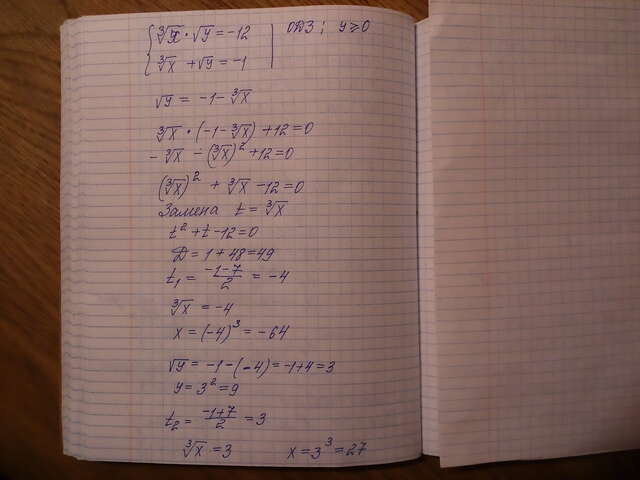 ∛x · √y = -12 ОДЗ; y ≥ 0
∛x + √y = -1
√y = -1 - ∛x
∛x · (-1 - ∛x) + 12 = 0
- ∛x - (∛x)² + 12 = 0
(∛x)² + ∛x - 12 = 0
Замена t = ∛x
t² + t - 12 = 0
D = 1 + 48 = 49
t₁ = (-1-7)/2 = -4
∛x = -4
x = (-4)³ = -64
√y = -1 - (-4) = -1 + 4 = 3
y = 3² = 9
t₂ = (-1+7)/2 = 3
∛x = 3 x = 3³ = 27